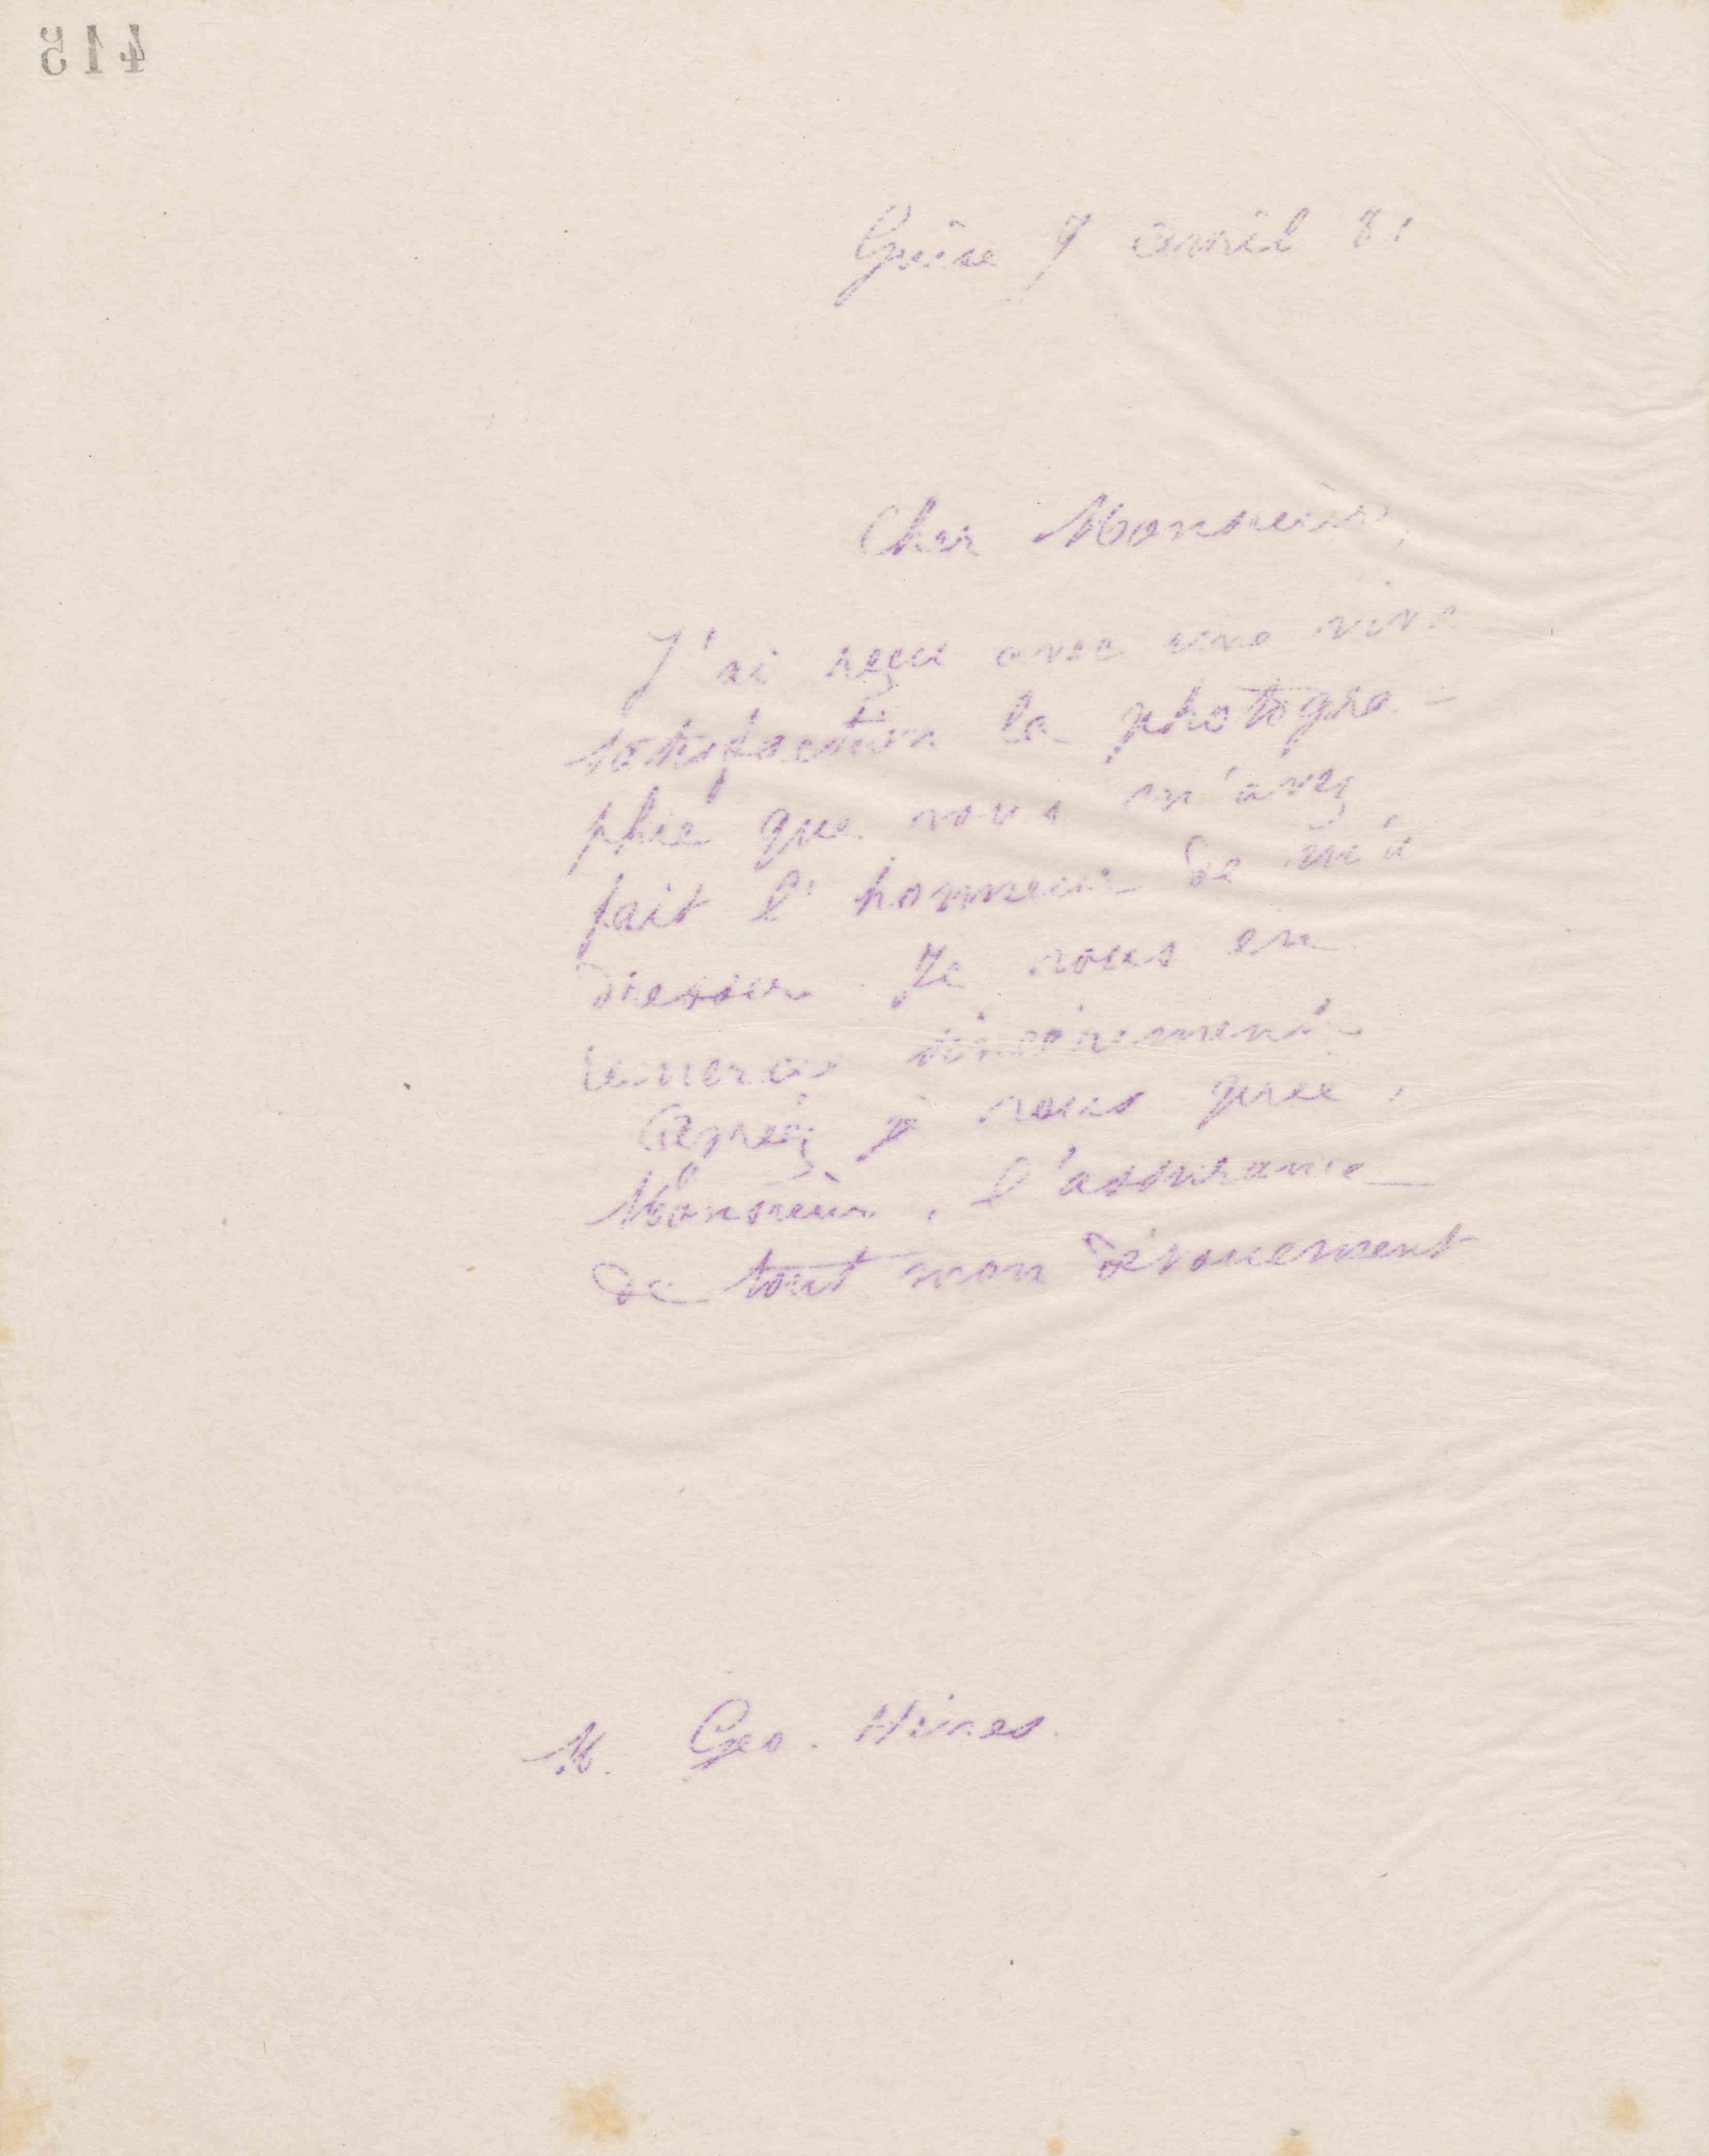 415
Guise 7 avril 81
Cher Monsieur,
J'ai reçu avec une vive
satisfaction la photogra-
phie que vous m'avez
fait l'honneur de m'a
dresser. Je vous en
remercie sincèrement.
Agréez je vous prie,
Monsieur, l'assurance
de tout mon dévouement
M. Geo. Hines.